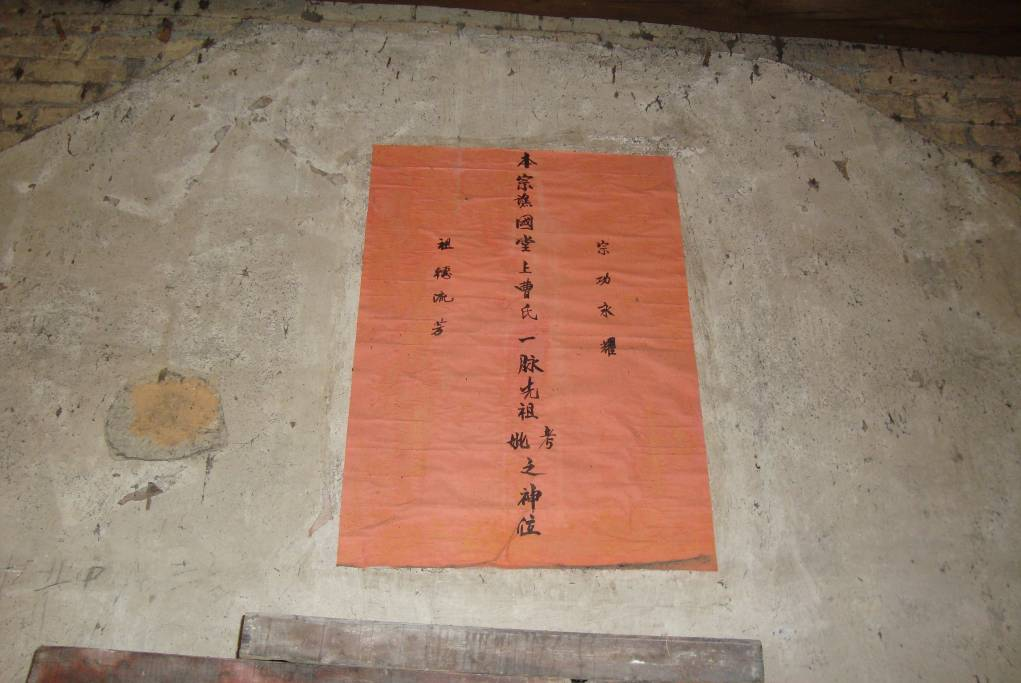 宗功永耀
本宗譙國堂上曹氏一脉先祖考妣之神位
祖德流芳